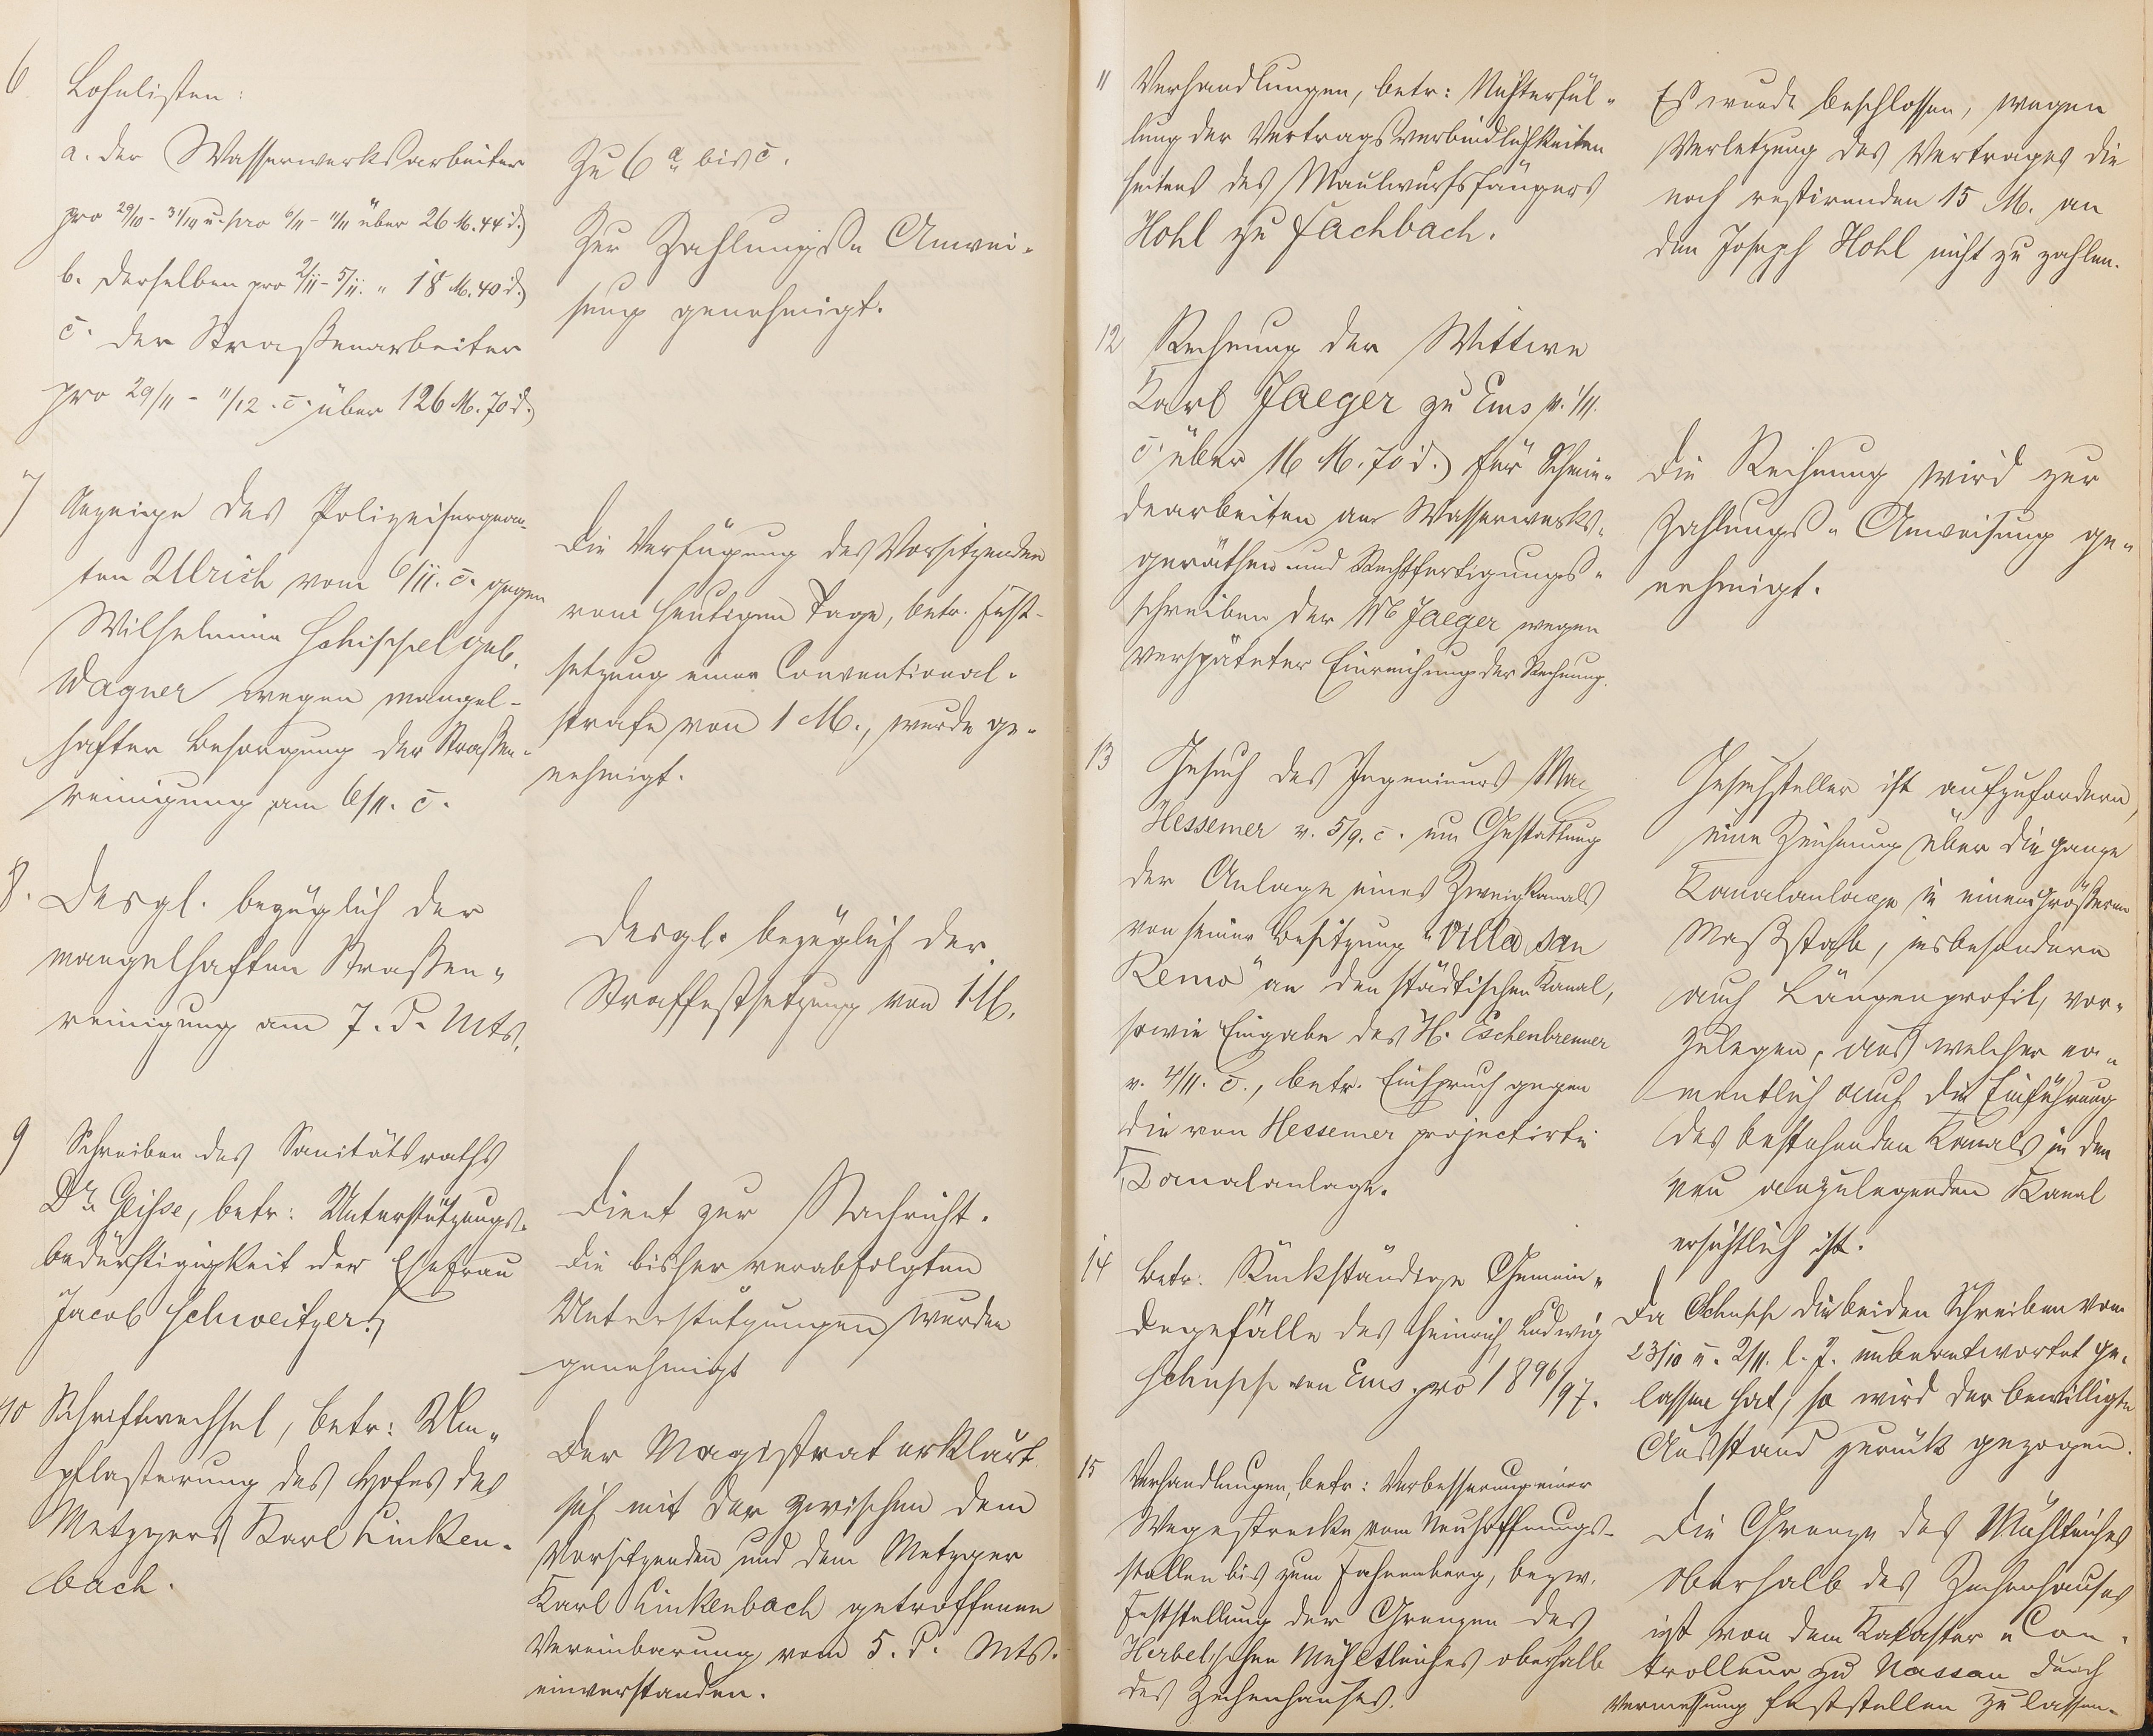 6. Lohnlisten:
a. der Wasserwerksarbeiter
pro 29/10 - 31/10 u. pro 6/11 - 11/11 über 26 M. 44 d.)
b. derselben pro 2/11 - 5/11. " 18 M. 40 d.)
c. der Straßenarbeiter
pro 29/11 - 11/12. c. über 126 M. 70 d.)
Zu 6 a bis c.
Zur Zahlungs-Anwei-
sung genehmigt.
7 Anzeige des Polizeisergean-
ten Ulrich vom 6/11. c. gegen
Wilhelmina Schissel geb.
Wagner wegen mangel-
hafter Besorgung der Straßen-
reinigung am 6/11. c.
Die Verfügung des Vorsitzenden
vom heutigen Tage, betr. Fest-
setzung einer Conventional-
strafe von 1 M., wurde ge-
nehmigt.
8. Desgl. bezüglich der
mangelhaften Straßen-
reinigung am 7. d. Mts.
Desgl. bezüglich der
Straffestsetzung von 1 M.
9 Schreiben des Sanitätsraths
Dr. Geisse, betr: Unterstützungs-
bedürftigkeit der Ehefrau
Jacob Schweitzer.
Dient zur Nachricht.
Die bisher verabfolgten
Unterstützungen wurden
genehmigt
10 Schriftwechsel, betr: Um-
pflasterung des Hofes des
Metzgers Karl Linken-
bach.
Der Magistrat erklärt
sich mit der zwischen dem
Vorsitzenden und dem Metzger
Karl Linkenbach getroffenen
Vereinbarung vom 5. d. Mts.
einverstanden.
11 Verhandlungen, betr: Nichterfül-
lung der Vertragsverbindlichkeiten
seitens des Maulwurfsfängers
Hohl zu Fachbach.
Es wurde beschlossen, wegen
Verletzung des Vertrages die
noch restirenden 15 M. an
den Joseph Hohl nicht zu zahlen.
12 Rechnung der Wittwe
Karl Jaeger zu Ems v. 1/11.
c. über 16 M. 70 d.) für Schmie-
dearbeiten an Wasserwerks-
geräthen und Rechtfertigungs-
schreiben der Wb Jaeger wegen
verspäteter Einreichung der Rechnung.
Die Rechnung wird zur
Zahlungs-Anweisung ge-
nehmigt.
13 Gesuch des Ingenieurs Max
Hessemer v. 5/9. c. um Gestattung
der Anlage eines Zweigkanals
von seiner Besitzung "Villa San
Remo" an den städtischen Kanal,
sowie Eingabe des H. Eschenbrenner
v. 4/11. c., betr. Einspruch gegen
die von Hessemer projectirte
Kanalanlage.
Gesuchsteller ist aufzufordern,
eine Zeichnung über die ganze
Kanalanlage in einem größeren
Maßstabe, insbesondere
auch Längenprofil, vor-
zulegen, aus welcher na-
mentlich auch die Einführung
des bestehenden Kanals in den
neu anzulegenden Kanal
ersichtlich ist.
14 Betr. Rückständige Gemein-
degefälle des Heinrich Ludwig
Schupp von Ems pro 1896/97.
Da Schupp die beiden Schreiben vom
23/10 u. 2/11. l. J. unbeantwortet ge-
lassen hat, so wird der bewilligte
Ausstand zurück gezogen.
15 Verhandlungen, betr: Verbesserung einer
Wegestrecke vom Neuhoffnungs-
stollen bis zum Fahnenberg, bezw.
Feststellung der Grenzen des
Herbel'schen Mühlteiches oberhalb
des Zechenhauses.
Die Grenze des Mühlteiches
oberhalb des Zechenhauses
ist von dem Kataster-Con-
trolleur zu Nassau durch
Vermessung feststellen zu lassen.